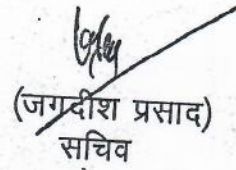 (जगदीश प्रसाद)
सचिव